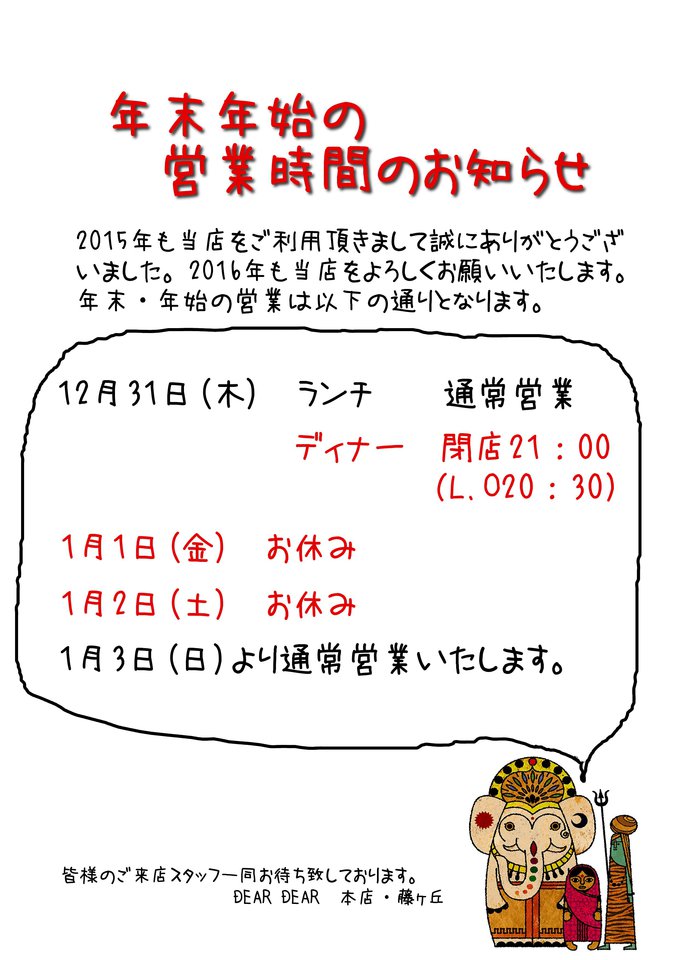 年末年始の
営業時間のお知らせ
2015年も当店をご利用頂きまして誠にありがとうござ
いました。2016年も当店をよろしくお願いいたします。
年末・年始の営業は以下の通りとなります。
12月31日(木) ランチ 通常営業
ディナー 閉店21:00
(L.O20:30)
1月1日(金) お休み
1月2日(土) お休み
1月3日(日)より通常営業いたします。
皆様のご来店スタッフ一同お待ち致しております。
DEAR DEAR 本店・藤ヶ丘